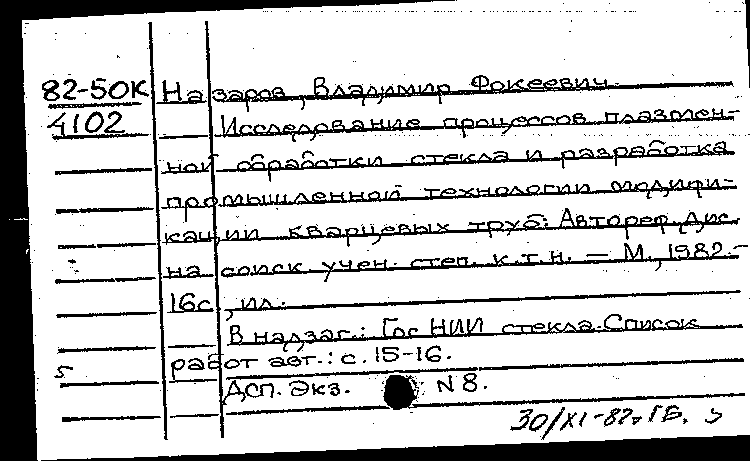 82-50К Назаров, Владимир Фокеевич.
4102 Исследование процессов плазмен-
ной обработки стекла и разработка
промышленной технологии модифи-
кации кварцевых труб: Автореф. Дис.
на соиск. учен. степ. к.т.н. — М., 1982.-
16с., ил.
В надзаг.: Гос НИИ стекла. Список
работ авт.: с. 15-16.
5
ДСП. Экз. N 8.
30/XI-82г. ГБ.